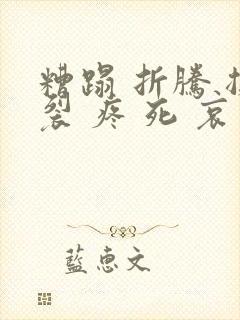 糟蹋 折騰、
裂 疼 死 哀
藍惠文